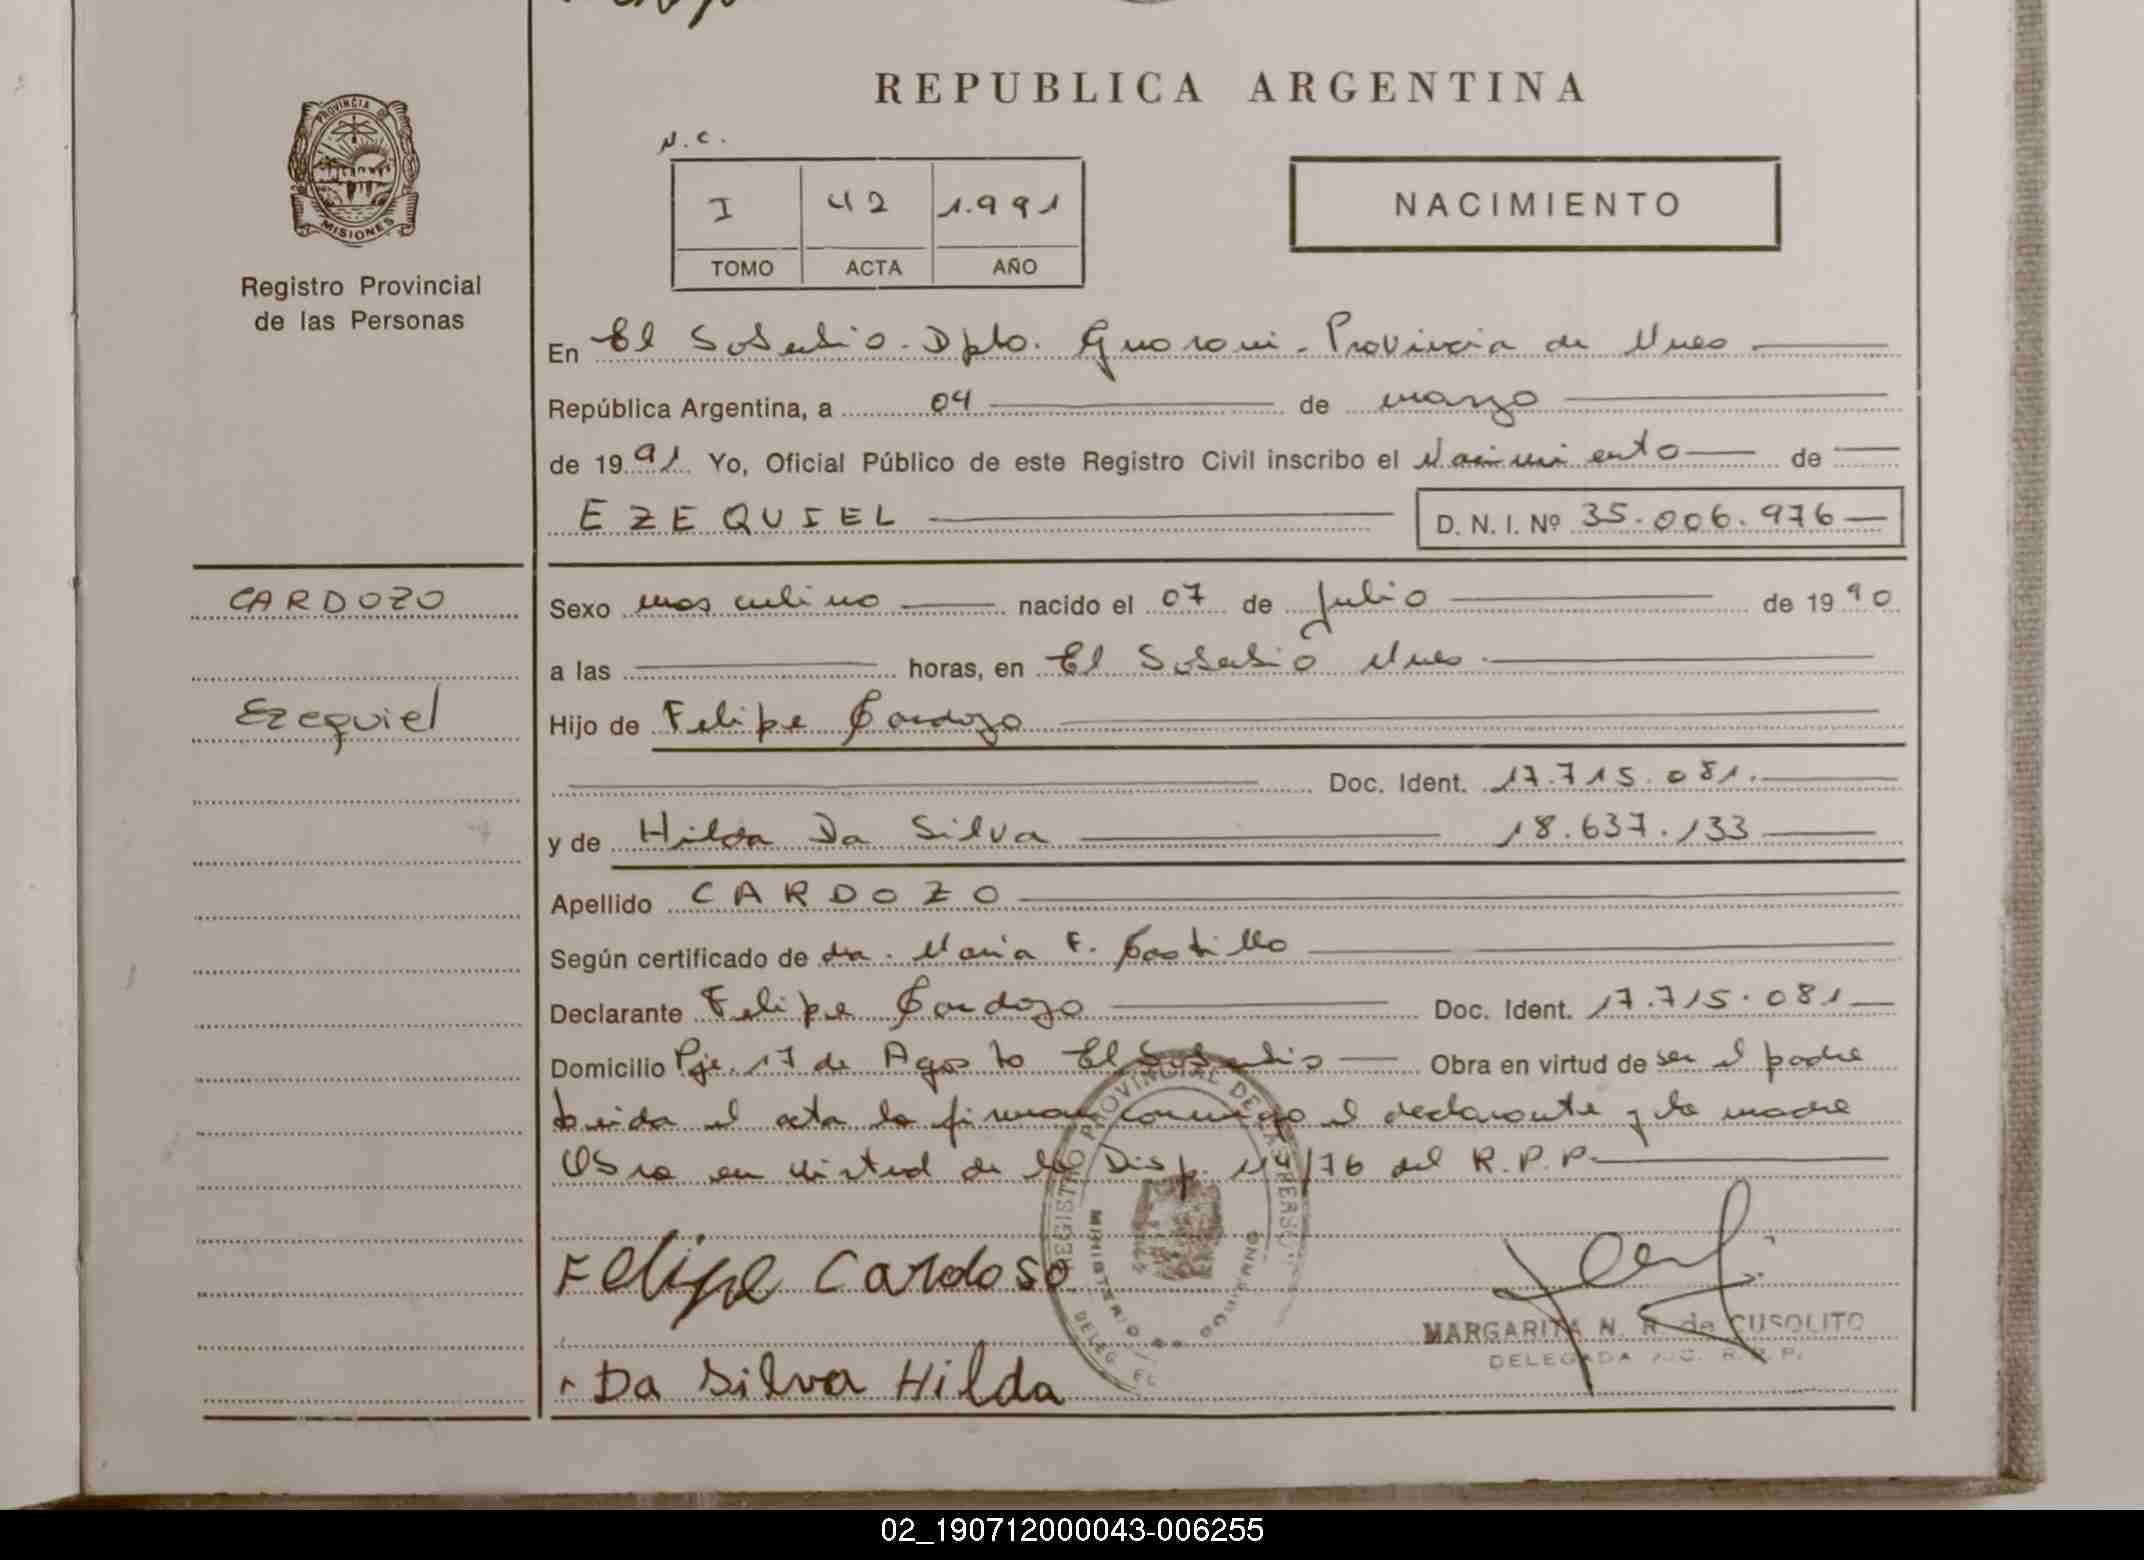 REPUBLICA ARGENTINA
PROVINCIA DE
MISIONES
Registro Provincial
de las Personas
N.C.
I 42 1.991
TOMO ACTA AÑO
NACIMIENTO
En El Soberbio. Dpto. Guarani. Provincia de Mnes
República Argentina, a 04 de marzo
de 1991 Yo, Oficial Público de este Registro Civil inscribo el Nacimiento de
EZEQUIEL D. N. I. Nº 35.006.976
CARDOZO
Ezequiel
Sexo masculino nacido el 07 de Julio de 1990
a las horas, en El Soberbio Mnes.
Hijo de Felipe Cardozo
Doc. Ident. 17.715.081.
y de Hilda Da Silva 18.637.133
Apellido CARDOZO
Según certificado de dra. Maria F. Castillo
Declarante Felipe Cardozo Doc. Ident. 17.715.081
Domicilio Pje. 17 de Agosto El Soberbio Obra en virtud de ser el padre
leida el acta la firman conmigo el declarante y la madre
Obra en virtud de la Disp. 114/76 del R.P.P.
REGISTRO PROVINCIAL DE LAS PERSONAS
MINISTERIO DE GOBIERNO
DELEG
Felipe Cardoso
MARGARITA N. R. de CUSOLITO
DELEGADA R. P.
Da Silva Hilda
02_190712000043-006255